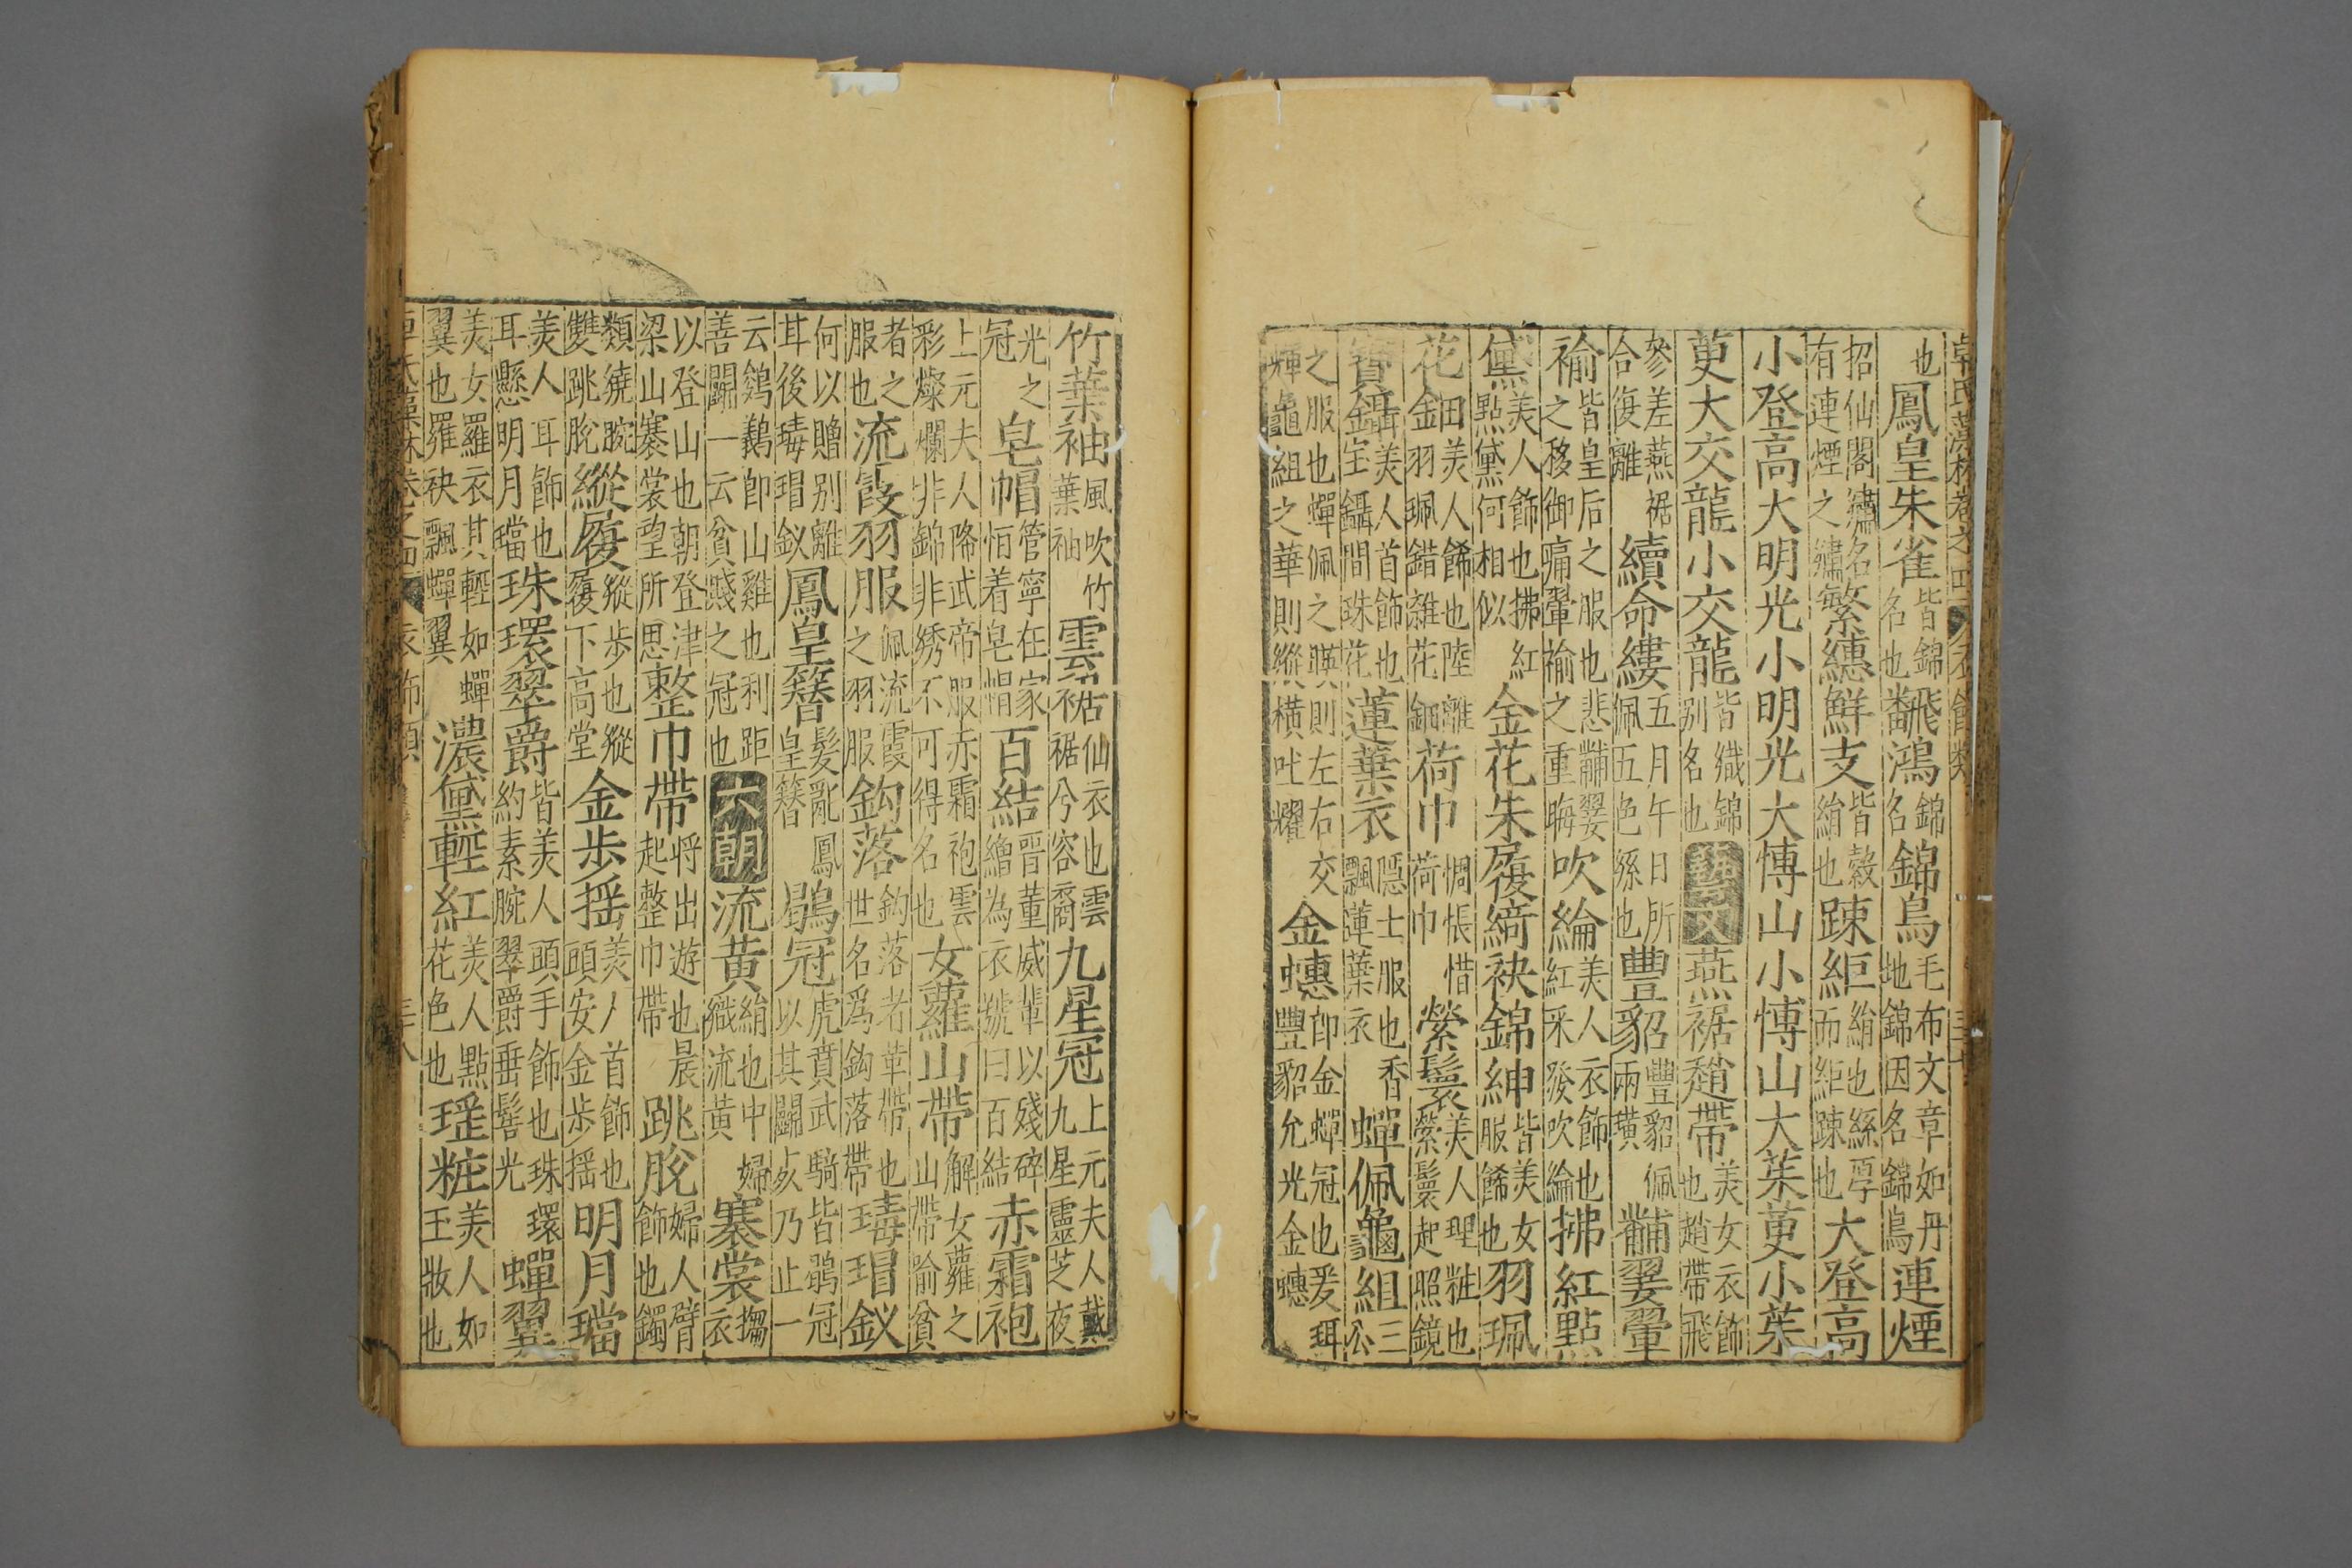 卓氏藻林卷之四 衣飾類
也鳳皇朱雀皆錦名也翻鴻錦名錦鳥毛布文章如丹地錦因名錦鳥連煙
招仙閣繡名有連煙之繡繁繐鮮支皆縠絹也踈絙絹也絲厚而絙踈也大登高
小登高大明光小明光大博山小博山大茱萸小茱
萸大交龍小交龍皆織錦別名也藝文燕裾趙帶美女衣飾也趙帶飛
參差燕裾合復離續命縷五月午日所佩五色絲也豐貂豐貂佩兩璜黼翣翬
褕皆皇后之服也悲黼翣之移御痛翬褕之重晦吹綸美人衣飾也紅采發吹綸拂紅點
黛美人飾也拂紅點黛何相似金花朱履綺袂錦紳皆美女服餙也羽珮
花金田美人餙也陸離金羽珮錯雜花鈿荷巾惆悵惜荷巾縈鬟美人理粧也縈鬟起照鏡
寶鑷美人首飾也宝鑷間珠花蓮葉衣隱士服也香飄蓮葉衣蟬佩龜組三公
之服也蟬佩之暎則左右交輝龜組之華則縱橫吐耀金蟪即金蟬冠也爰珥豐貂允光金蟪
竹葉袖風吹竹葉袖雲裾仙衣也雲裾兮容裔九星冠上元夫人戴九星靈芝夜
光之冠皂帽管寧在家恒着皂帽百結晋董威輦以殘碎繒為衣號曰百結赤霜袍
上元夫人降武帝服赤霜袍雲彩燦爛非錦非绣不可得名也女蘿山帶解女蘿之山帶喻貧
者之服也流霞羽服佩流霞之羽服鈎落鈎落者革帶也世名爲鈎落帶瑇瑁釵
何以贈别離耳後瑇瑁釵鳳皇簪髮亂鳳皇簪鶡冠虎賁武騎皆鶡冠以其鬬死乃止一
云鷄鶡即山雞也利距善鬬一云貧賤之冠也六朝流黄絹也中婦織流黄褰裳攝衣
以登山也朝登津梁山褰裳望所思整巾帶将出遊也晨起整巾帶跳脫婦人臂飾也鐲
類繞腕雙跳脫縱履縱步也縱履下高堂金步摇美人首飾也頭安金步摇明月璫
美人耳飾也耳懸明月璫珠環翠爵皆美人頭手飾也珠環約素腕翠爵垂髻光蟬翼
美女羅衣其輕如蟬翼也羅袂飄蟬翼濃黛輕紅美人點花色也瑶粧美人如玉妝也